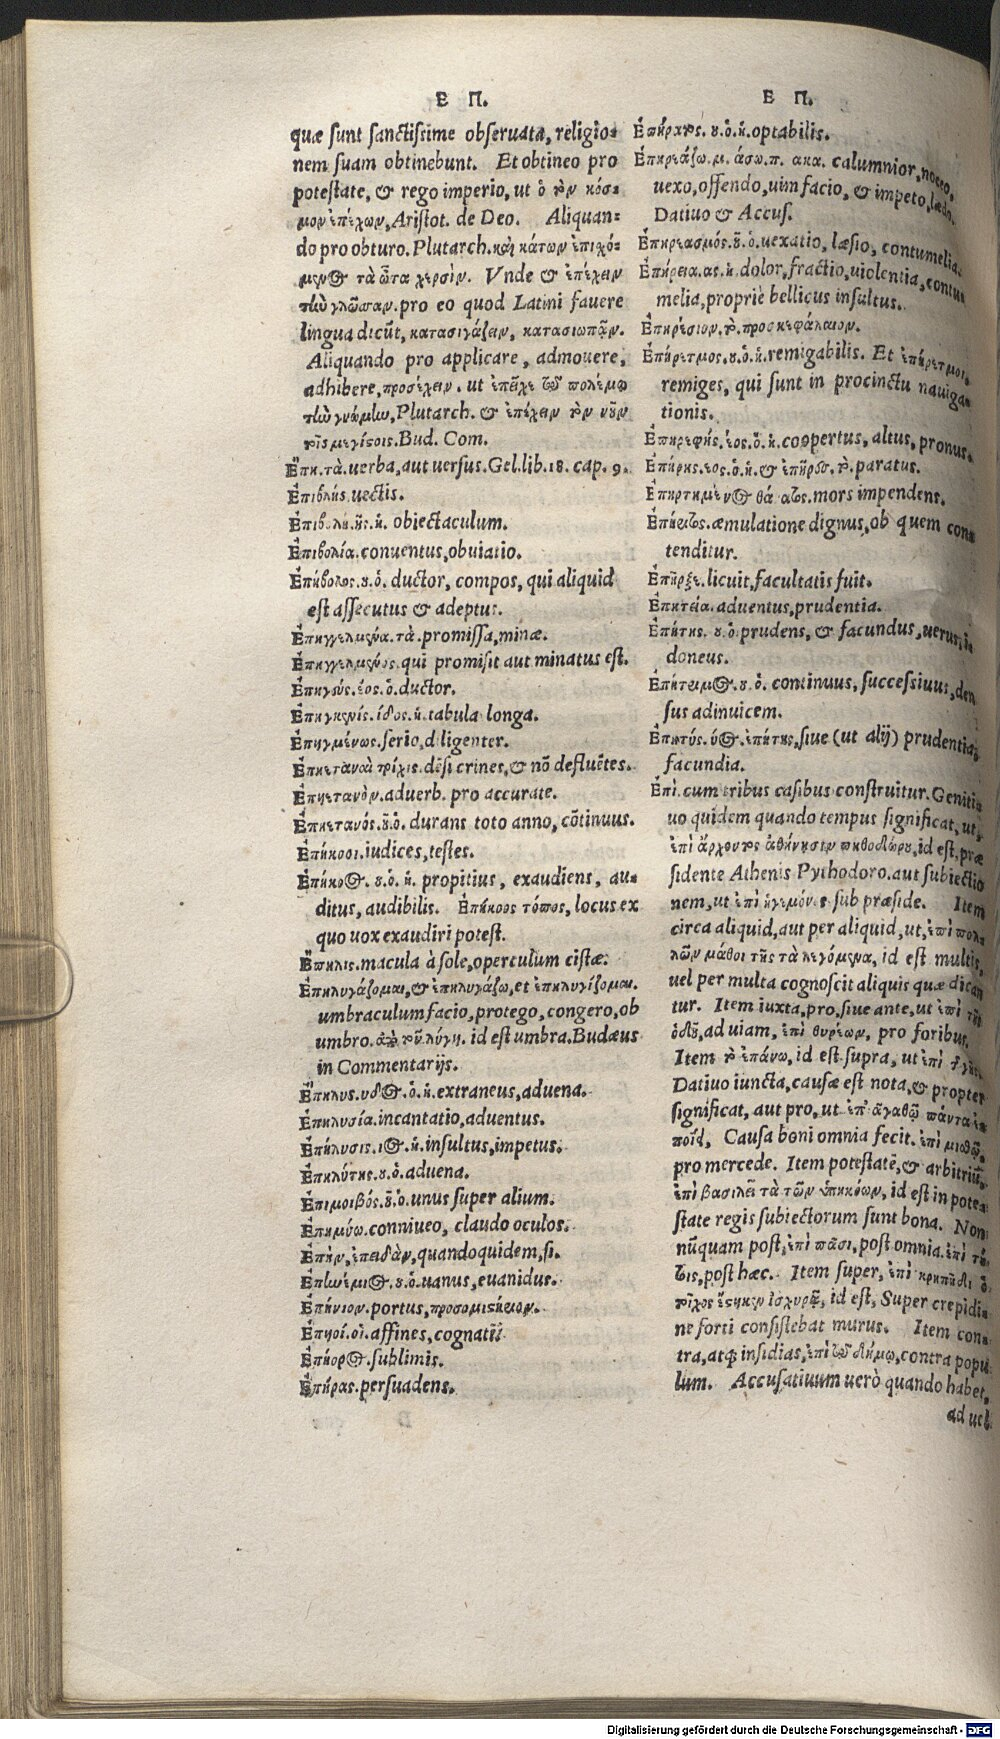 Ε Π.
quæ sunt sanctissime obseruata, religio-
nem suam obtinebunt. Et obtineo pro
potestate, & rego imperio, ut ὁ τὸν κόσ-
μον ἐπέχων, Aristot. de Deo. Aliquan-
do pro obturo. Plutarch. καὶ κάτων ἐπιχό-
μενος τὰ ὦτα χερσὶν. Vnde & ἐπέχειν
τὴν γλῶσσαν. pro eo quod Latini fauere
lingua dicũt, κατασιγάζειν, κατασιωπᾶν.
Aliquando pro applicare, admouere,
adhibere, προσέχειν. ut ἐπεῖχε τῷ πολέμῳ
τὴν γνώμην, Plutarch. & ἐπέχειν τὸν νοῦν
τοῖς μεγίστοις. Bud. Com.
Ἔπη. τὰ. uerba, aut uersus. Gel. lib. 18. cap. 9.
Ἐπιβλής. uectis.
Ἐπιβολὴ. ῆς. ἡ. obiectaculum.
Ἐπιβολία. conuentus, obuiatio.
Ἐπήβολος. ου. ὁ. ductor, compos, qui aliquid
est assecutus & adeptus.
Ἐπηγγελμένα. τὰ. promissa, minæ.
Ἐπηγγελμένος. qui promisit aut minatus est.
Ἐπηγεύς. έος. ὁ. ductor.
Ἐπηγκενίς. ίδος. ἡ. tabula longa.
Ἐπηγμένως. serio, diligenter.
Ἐπηεταναὶ τρίχες. dẽsi crines, & nõ defluẽtes.
Ἐπηετανὸν. aduerb. pro accurate.
Ἐπηετανός. οῦ. ὁ. durans toto anno, cõtinuus.
Ἐπήκοοι. iudices, testes.
Ἐπήκοος. ου. ὁ. ἡ. propitius, exaudiens, au-
ditus, audibilis. Ἐπήκοος τόπος, locus ex
quo uox exaudiri potest.
Ἔπηλις. macula à sole, operculum cistæ.
Ἐπηλυγάζομαι, & ἐπηλυγάζω, et ἐπηλυγίζομαι.
umbraculum facio, protego, congero, ob
umbro. ἀπὸ τοῦ λύγη. id est umbra. Budæus
in Commentarijs.
Ἔπηλυς. υδος. ὁ. ἡ. extraneus, aduena.
Ἐπηλυσία. incantatio, aduentus.
Ἐπήλυσις. ιος. ἡ. insultus, impetus.
Ἐπηλύτης. ου. ὁ. aduena.
Ἐπιμοιβός. οῦ. ὁ. unus super alium.
Ἐπημύω. conniueo, claudo oculos.
Ἐπὴν, ἐπειδὰν, quandoquidem, si.
Ἐπηνέμιος. ου. ὁ. uanus, euanidus.
Ἐπήνιον. portus, προσομιστήριον.
Ἐπηοί. οἱ. affines, cognati.
Ἐπήορος. sublimis.
Ἐπήρας. persuadens.
Ε Π.
Ἐπήρατος. ου. ὁ. ἡ. optabilis.
Ἐπηρεάζω. μ. άσω. π. ακα. calumnior, noceo,
uexo, offendo, uim facio, & impeto, lædo.
Datiuo & Accus.
Ἐπηρεασμός. οῦ. ὁ. uexatio, læsio, contumelia.
Ἐπήρεια. ας. ἡ. dolor, fractio, uiolentia, contu
melia, propriè bellicus insultus.
Ἐπηρέσιον. τὸ. προσκεφάλαιον.
Ἐπήρετμος. ου. ὁ. ἡ. remigabilis. Et ἐπήρετμοι,
remiges, qui sunt in procinctu nauiga-
tionis.
Ἐπηρεφής. έος. ὁ. ἡ. coopertus, altus, pronus.
Ἐπήρης. εος. ὁ. ἡ. & ἐπῆρες. τὸ. paratus.
Ἐπηρτημένος θάνατος. mors impendens.
æmulatione dignus, ob quem con-
tenditur.
Ἐπῆρξε. licuit, facultatis fuit.
Ἐπητεία. aduentus, prudentia.
Ἐπήτης. ου. ὁ prudens, & facundus, uerus, i-
doneus.
Ἐπήτριμος. ου. ὁ. continuus, successiuus, den
sus adinuicem.
Ἐπητύς. ύος. ἐπήτης, siue (ut alij) prudentia,
facundia.
Ἐπὶ. cum tribus casibus construitur. Geniti
uo quidem quando tempus significat, ut,
ἐπὶ ἄρχοντος ἀθήνησιν πυθοδώρου, id est, præ
sidente Athenis Pythodoro. aut subiectio
nem, ut ἐπὶ ἡγεμόνος sub præside. Item
circa aliquid, aut per aliquid, ut, ἐπὶ πολ-
λῶν μάθοι τῆς τὰ λεγόμενα, id est multis,
uel per multa cognoscit aliquis quæ dican
tur. Item iuxta, pro, siue ante, ut ἐπὶ τῆς
ὁδοῦ, ad uiam, ἐπὶ θυρέων, pro foribus.
Item τὸ ἐπάνω, id est supra, ut ἐπὶ τῆς γῆς.
Datiuo iuncta, causæ est nota, & propter
significat, aut pro, ut ἐπ᾽ ἀγαθῷ πάντα ἐ-
ποίει, Causa boni omnia fecit. ἐπὶ μισθῷ,
pro mercede. Item potestatẽ, & arbitriũ,
ἐπὶ βασιλεῖ τὰ τῶν ὑπηκόων, id est in pote-
state regis subiectorum sunt bona. Non
nũquam post, ἐπὶ πᾶσι, post omnia. ἐπὶ τού
τοις, post hæc. Item super, ἐπὶ κρηπῖδι ὁ
τοῖχος ἕστηκεν ἰσχυρᾷ, id est, Super crepidi-
ne forti consistebat murus. Item con-
tra, atq; insidias, ἐπὶ τῷ δήμῳ, contra popu
lum. Accusatiuum uerò quando habet,
ad uel
Digitalisierung gefördert durch die Deutsche Forschungsgemeinschaft - DFG